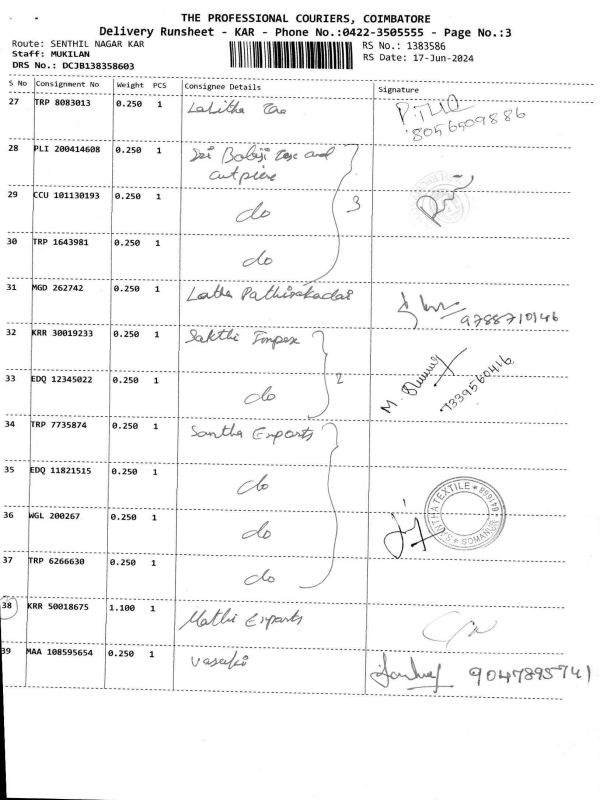 THE PROFESSIONAL COURIERS, COIMBATORE
Delivery Runsheet - KAR - Phone No.:0422-3505555 - Page No.:3
Route: SENTHIL NAGAR KAR
RS No.: 1383586
Staff: MUKILAN
RS Date: 17-Jun-2024
DRS No.: DCJB138358603
S No Consignment No Weight PCS Consignee Details Signature
27 TRP 8083013 0.250 1 Lalitha
8056509886
28 PLI 200414608 0.250 1 Sri Babiji Tex and
cutpiece
29 CCU 101130193 0.250 1 do 3
30 TRP 1643981 0.250 1 do
31 MGD 262742 0.250 1 Latha Pathirakadai
9788710146
32 KRR 30019233 0.250 1 Sakthi Impex
33 EDQ 12345022 0.250 1 do 2
M.
7339560416
34 TRP 7735874 0.250 1 Santha Exports
35 EDQ 11821515 0.250 1 do
36 WGL 200267 0.250 1 do
SANTHA TEXTILE * 641668 * SOMANUR *
37 TRP 6266630 0.250 1 do
38 KRR 50018675 1.100 1 Mathi Exports
39 MAA 108595654 0.250 1 Vasuki
9047895741